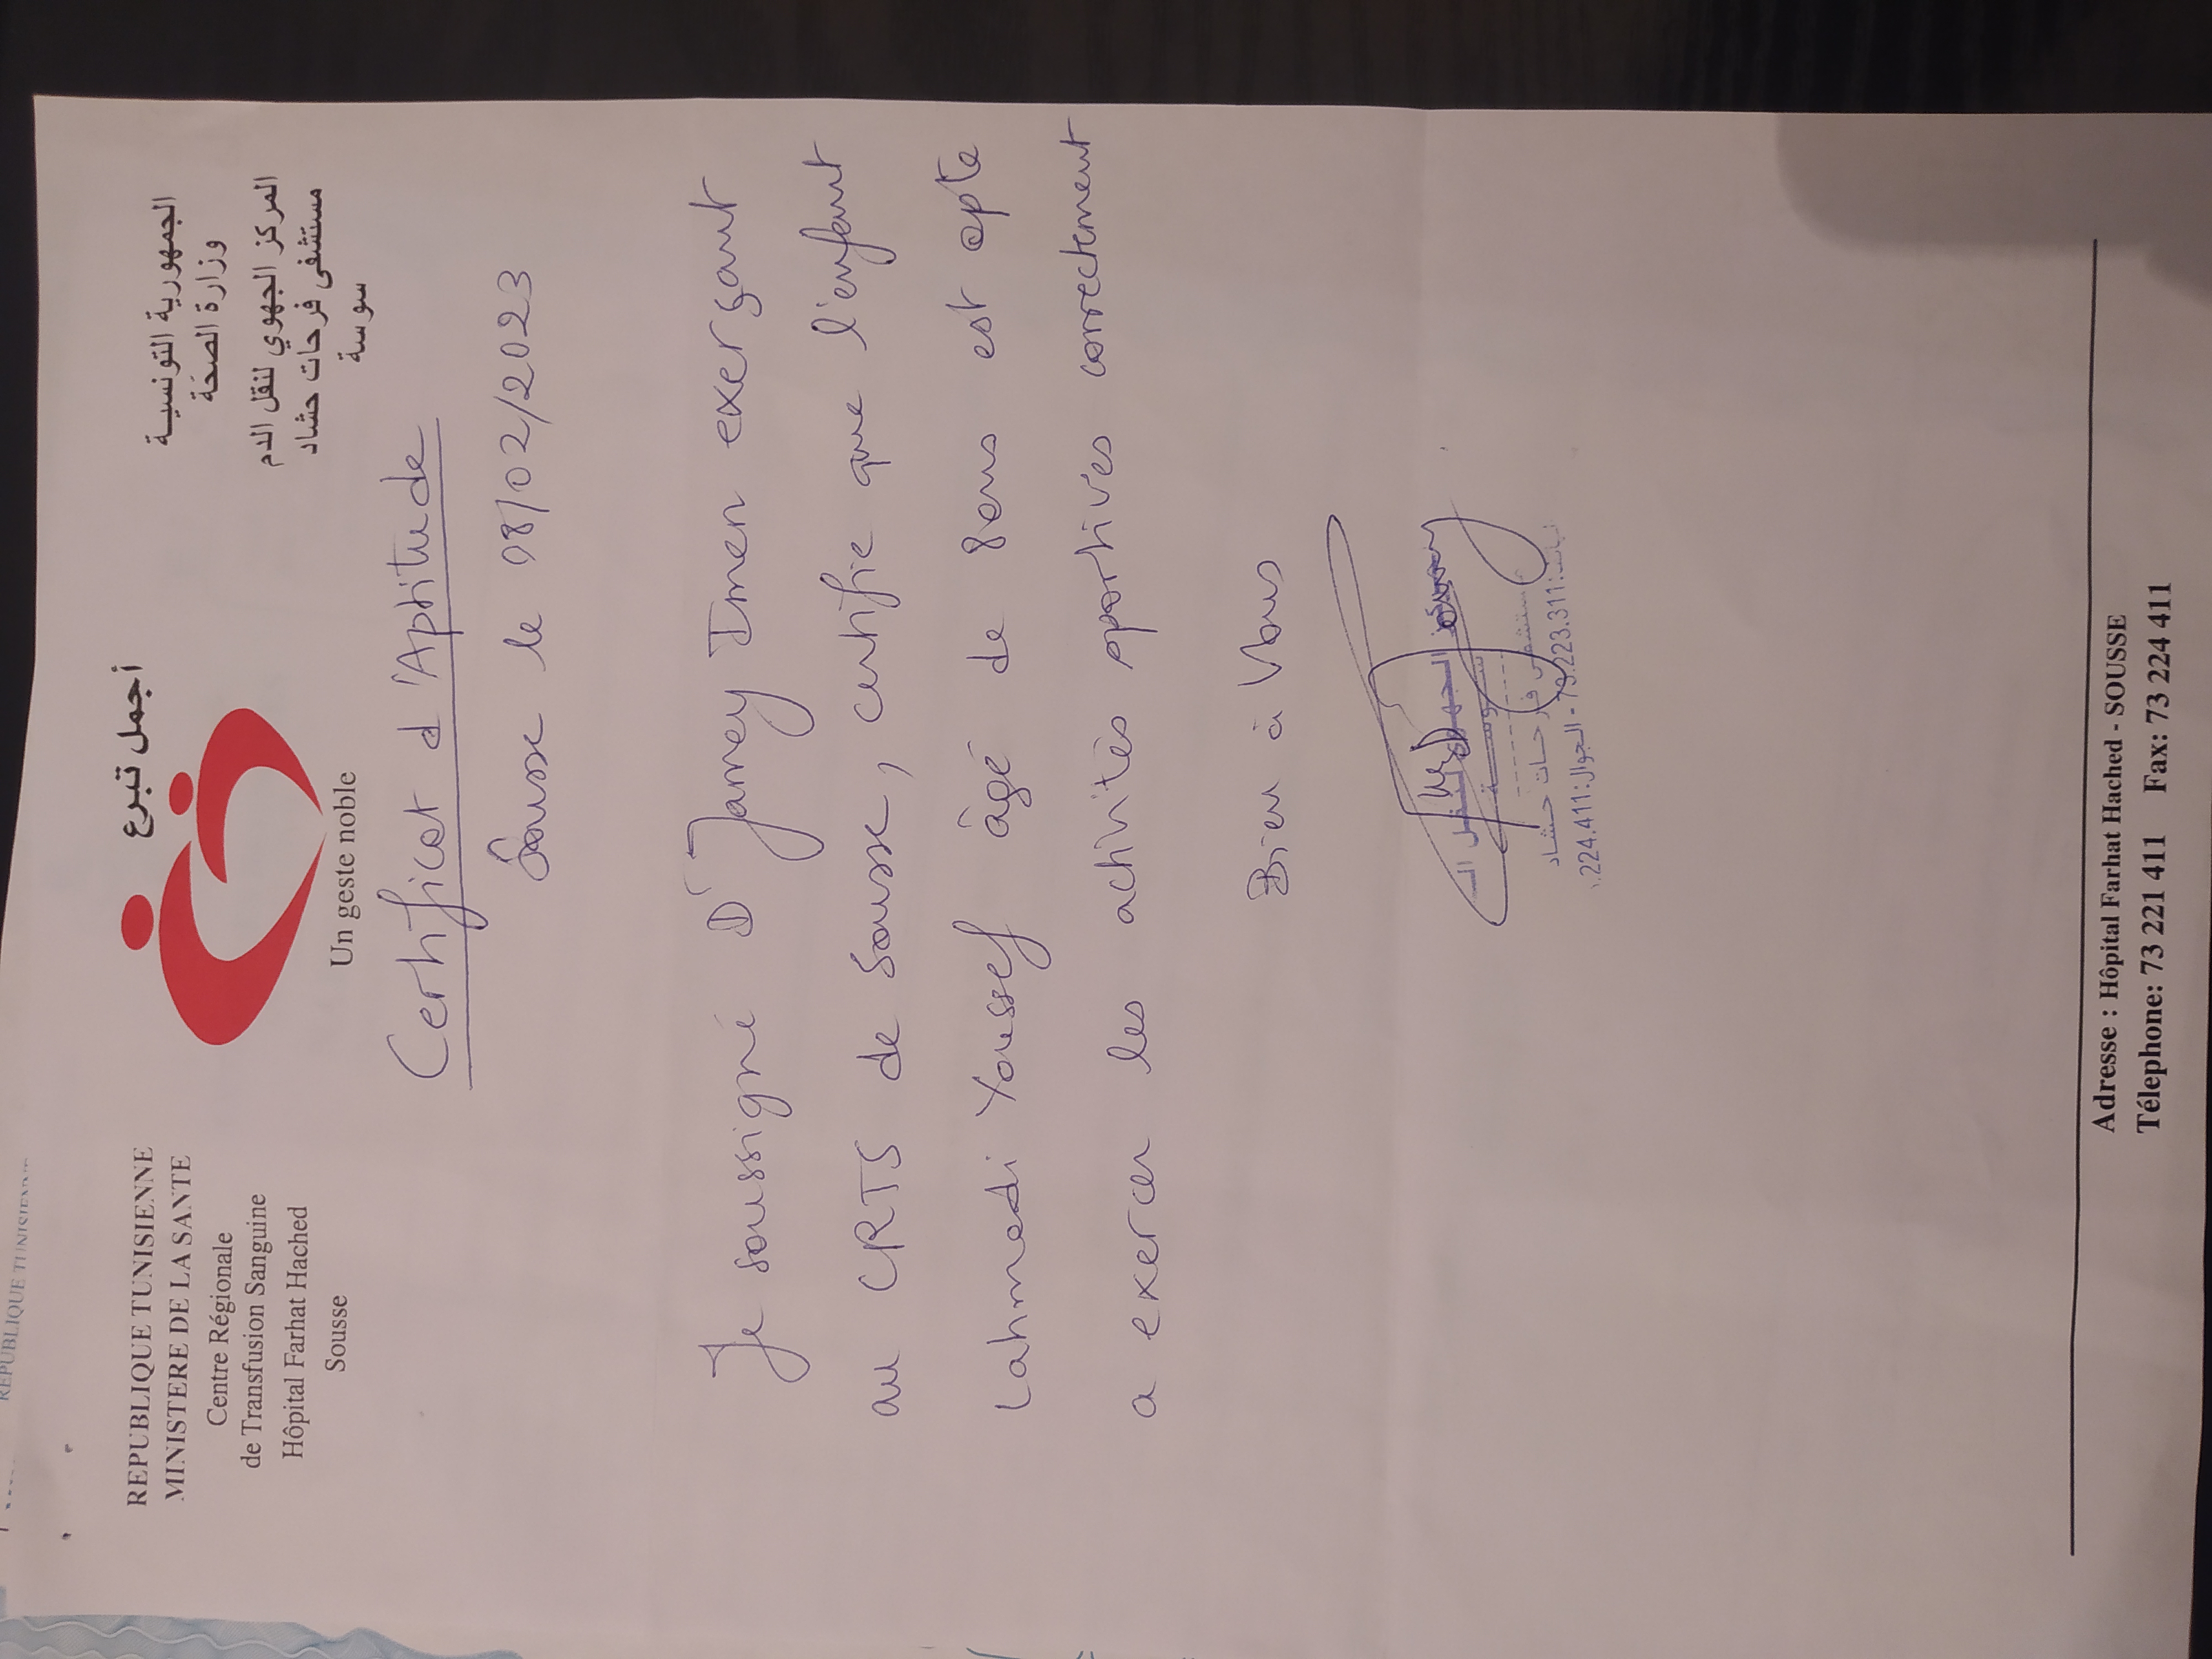 REPUBLIQUE TUNISIENNE
MINISTERE DE LA SANTE
Centre Régionale
de Transfusion Sanguine
Hôpital Farhat Hached
Sousse
أجمل تبرع
Un geste noble
الجمهورية التونسية
وزارة الصحة
المركز الجهوي لنقل الدم
مستشفى فرحات حشاد
سوسة
Certificat d'Aptitude
Sousse le 08/02/2023
Je soussigné Dr Jamey Imen exersant
au CRTS de Sousse, certifie que l'enfant
Lahmedi Youssef âgé de 8ans est apte
a exercer les activités sportives correctement
Bien à Vous
مستشفى فرحات حشاد
224.411 الجوال: - 73.223.311
Adresse : Hôpital Farhat Hached - SOUSSE
Télephone: 73 221 411 Fax: 73 224 411